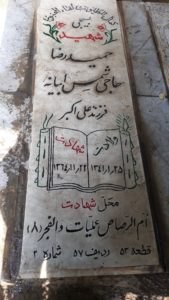 شهید
حمید رضا
حاجی شمس ابیانه
فرزند علی اکبر
ولادت شهادت
۱۳۴۱/۱/۲۵ ۱۳۶۴/۱۱/۲۲
محل شهادت
ام الرصاص عملیات والفجر (۸)
قطعه ۵۳ ردیف ۵۷ شماره ۲